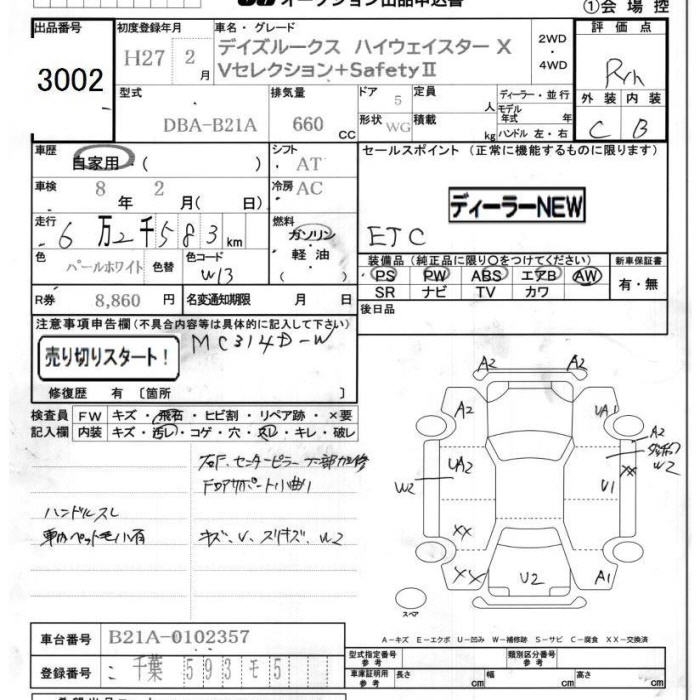 オークション出品申込書
①会場控
出品番号
3002
初度登録年月
H27 2月
車名・グレード
デイズルークス ハイウェイスター X
Vセレクション+SafetyⅡ
2WD
・
4WD
評価点
外装 内装
C B
型式
DBA-B21A
排気量
660 CC
ドア
5
形状
WG
定員
人
積載
kg
ディーラー・並行
モデル年式 年
ハンドル 左・右
車歴
自家用・( )
シフト
AT
車検
8年 2月( 日)
冷房
AC
走行
6万2千583km
燃料
ガソリン・
軽油・
( )
色
パールホワイト
色替
色コード
W13
R券
8,860 円
名変通知期限 月 日
セールスポイント (正常に機能するものに限ります)
ディーラーNEW
ETC
装備品(純正品に限り〇をつけてください)
PS PW ABS エアB AW
SR ナビ TV カワ
新車保証書
有・無
後日品
注意事項申告欄(不具合内容等は具体的に記入して下さい)
売り切りスタート!
MC314D-W
修復歴 有 〔箇所 〕
検査員
記入欄
FW キズ・飛石・ヒビ割・リペア跡・×要
内装 キズ・汚レ・コゲ・穴・スレ・キレ・破レ
右F.センターピラー下部加修
ハンドルスレ
キズ、U、スリキズ、W2
A2
A2
UA1
A2
UA2
W2
XX
W2
U1
XX
XX
U2
A1
スペア
A-キズ E-エクボ U-凹み W-補修跡 S-サビ C-腐食 XX-交換済
車台番号
B21A-0102357
登録番号
千葉 593 モ 5
型式指定番号
参考
類別区分番号
参考
車庫証明用
参考
長さ cm 幅 cm 高さ cm